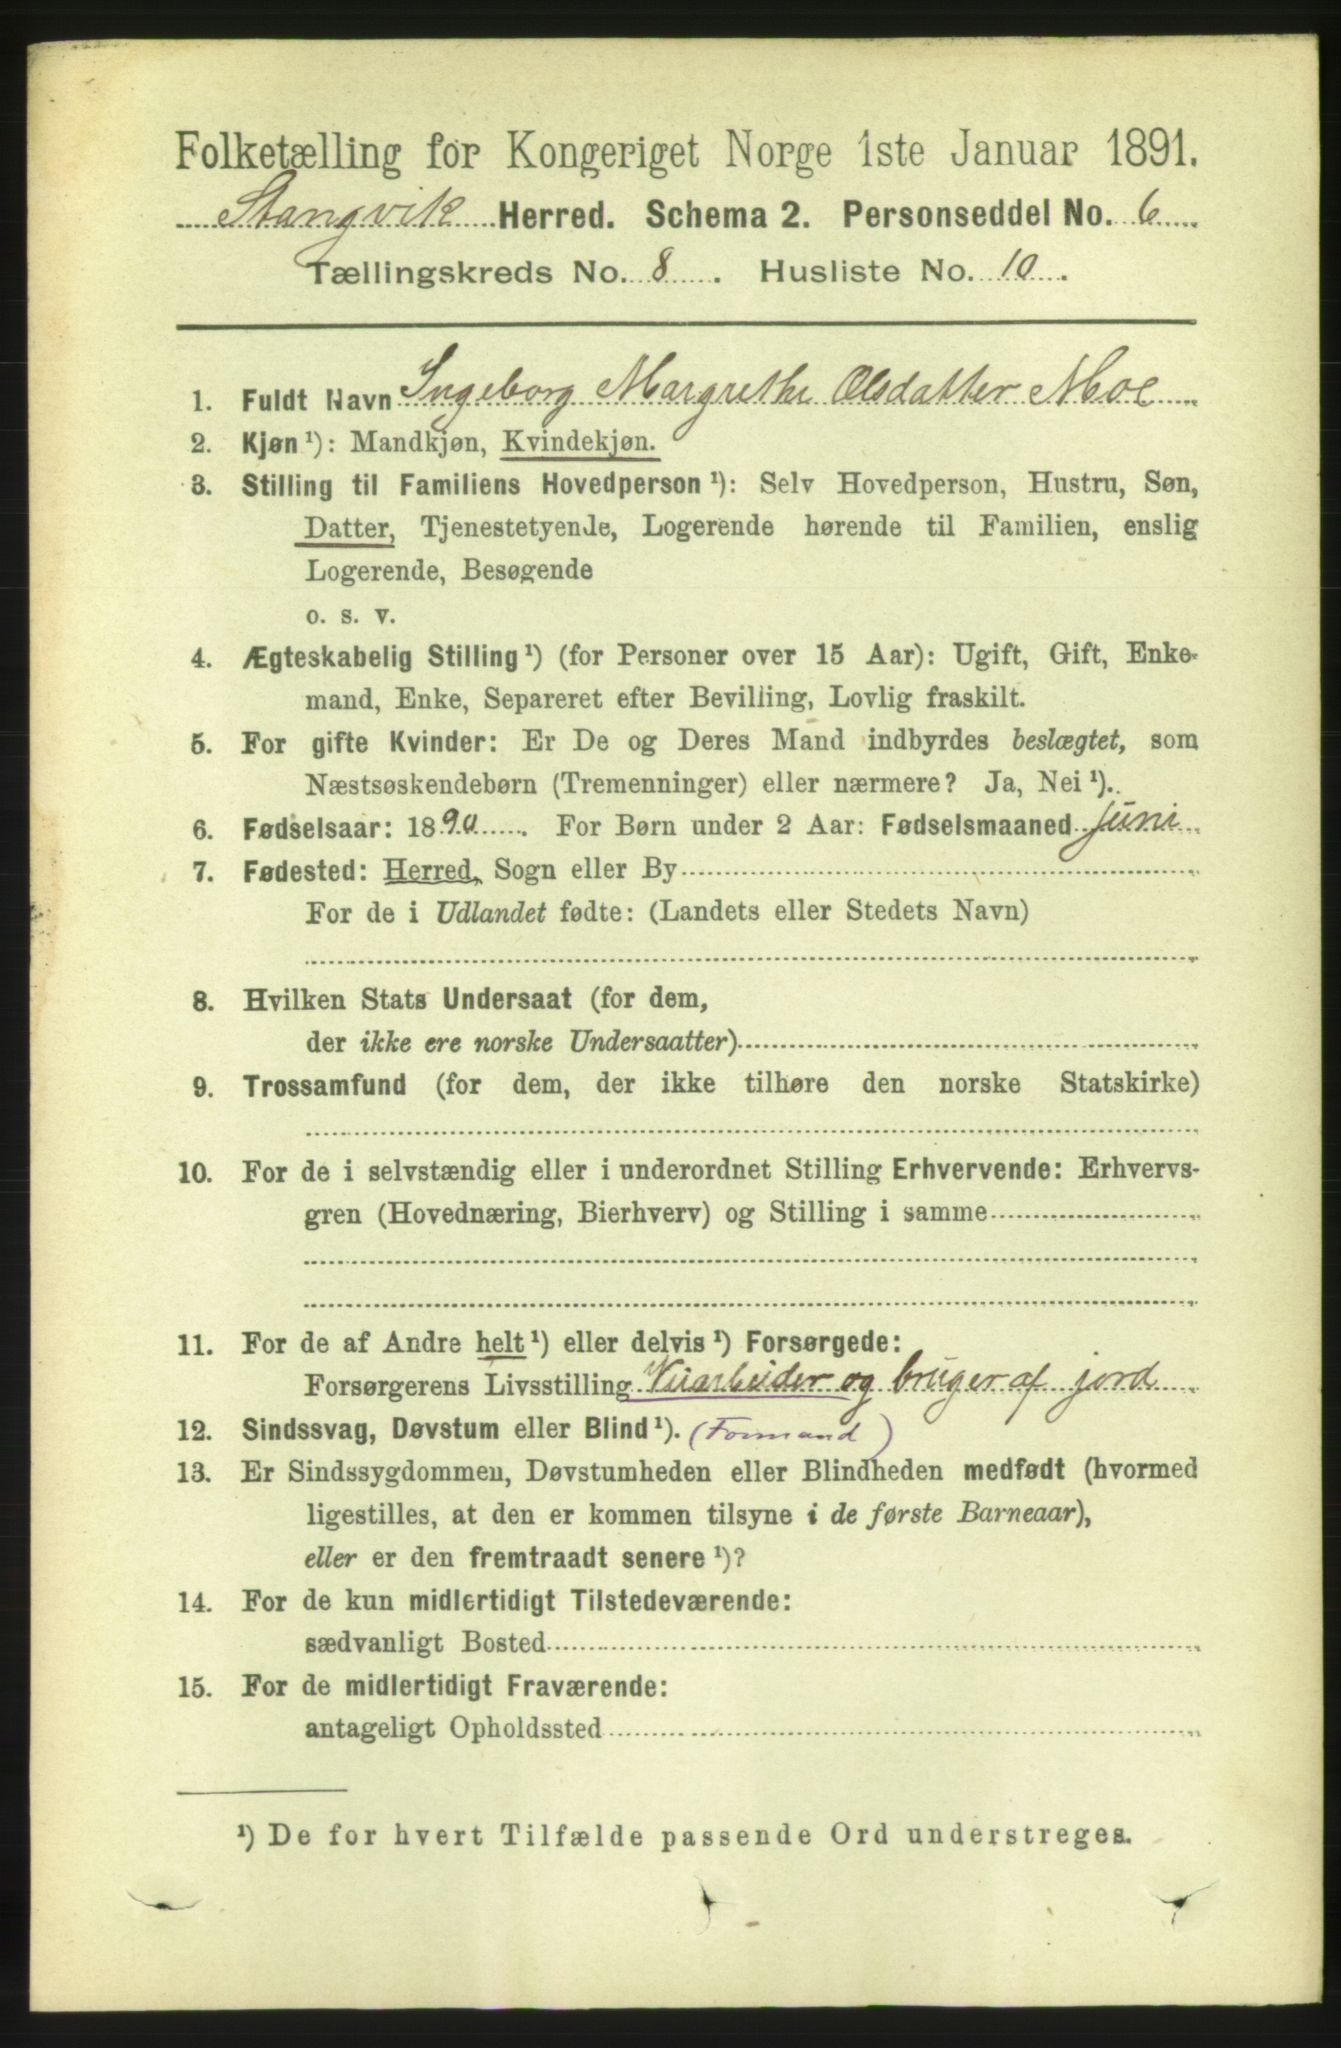 Folketælling for Kongeriget Norge 1ste Januar 1891.
Stangvik Herred. Schema 2. Personseddel No. 6
Tællingskreds No. 8. Husliste No. 10.
1. Fuldt Navn Ingeborg Margrethe Olsdatter Moe
2. Kjøn ¹): Mandkjøn, Kvindekjøn.
3. Stilling til Familiens Hovedperson ¹): Selv Hovedperson, Hustru, Søn,
Datter, Tjenestetyende, Logerende hørende til Familien, enslig
Logerende, Besøgende
o. s. v.
4. Ægteskabelig Stilling ¹) (for Personer over 15 Aar): Ugift, Gift, Enke-
mand, Enke, Separeret efter Bevilling, Lovlig fraskilt.
5. For gifte Kvinder: Er De og Deres Mand indbyrdes beslægtet, som
Næstsøskendebørn (Tremenninger) eller nærmere? Ja, Nei ¹).
6. Fødselsaar: 1890. For Børn under 2 Aar: Fødselsmaaned juni
7. Fødested: Herred, Sogn eller By
For de i Udlandet fødte: (Landets eller Stedets Navn)
8. Hvilken Stats Undersaat (for dem,
der ikke ere norske Undersaatter)
9. Trossamfund (for dem, der ikke tilhøre den norske Statskirke)
10. For de i selvstændig eller i underordnet Stilling Erhvervende: Erhvervs-
gren (Hovednæring, Bierhverv) og Stilling i samme
11. For de af Andre helt ¹) eller delvis ¹) Forsørgede:
Forsørgerens Livsstilling Veiarbeider og bruger af jord
12. Sindssvag, Døvstum eller Blind ¹). (Formand)
13. Er Sindssygdommen, Døvstumheden eller Blindheden medfødt (hvormed
ligestilles, at den er kommen tilsyne i de første Barneaar),
eller er den fremtraadt senere ¹)?
14. For de kun midlertidigt Tilstedeværende:
sædvanligt Bosted
15. For de midlertidigt Fraværende:
antageligt Opholdssted
¹) De for hvert Tilfælde passende Ord understreges.